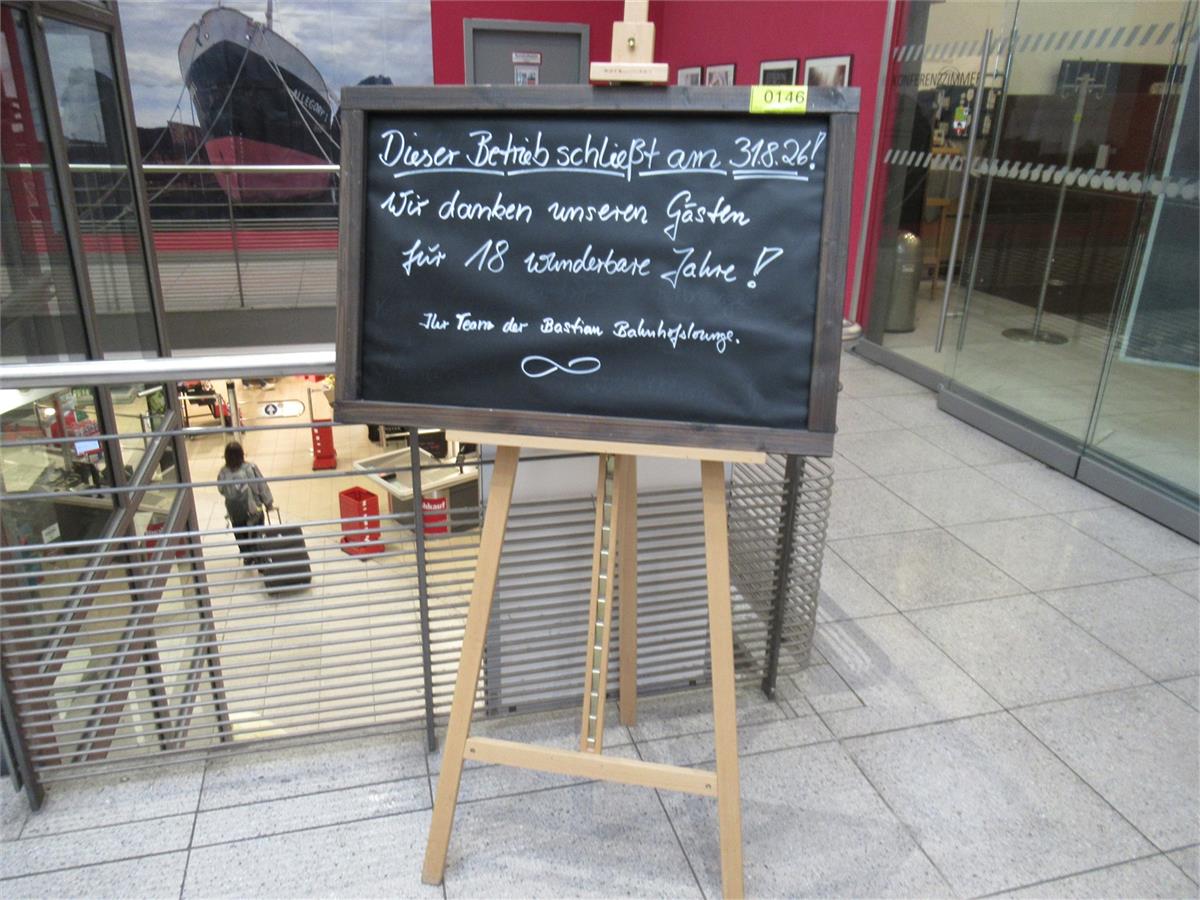 ALLEGORY
KONFERENZZIMMER
0146
Dieser Betrieb schließt am 31.8.26!
Wir danken unseren Gästen
für 18 wunderbare Jahre!
Ihr Team der Bastian Bahnhofslounge.